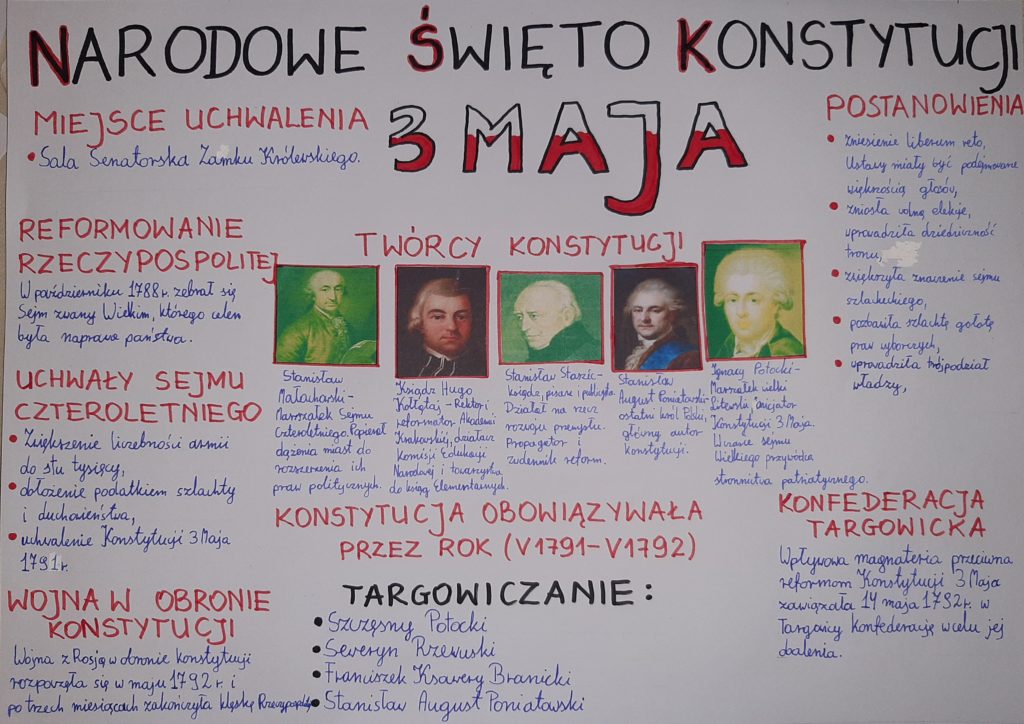 NARODOWE ŚWIĘTO KONSTYTUCJI
3 MAJA
MIEJSCE UCHWALENIA
• Sala Senatorska Zamku Królewskiego.
REFORMOWANIE
RZECZYPOSPOLITEJ
W październiku 1788 r. zebrał się
Sejm zwany Wielkim, którego celem
była naprawa państwa.
UCHWAŁY SEJMU
CZTEROLETNIEGO
• Zwiększenie liczebności armii
do stu tysięcy,
• obłożenie podatkiem szlachty
i duchowieństwa,
• uchwalenie Konstytucji 3 Maja
1791 r.
WOJNA W OBRONIE
KONSTYTUCJI
Wojna z Rosją w obronie konstytucji
rozpoczęła się w maju 1792 r. i
po trzech miesiącach zakończyła klęską Rzeczypospolitej
TWÓRCY KONSTYTUCJI
Stanisław
Małachowski-
Marszałek Sejmu
Czteroletniego. Popierał
dążenia miast do
rozszerzenia ich
praw politycznych.
Ksiądz Hugo
Kołłątaj - Rektor i
reformator Akademii
Krakowskiej, działacz
Komisji Edukacji
Narodowej i towarzystwa
do ksiąg Elementarnych.
Stanisław Staszic-
ksiądz, pisarz i publicysta.
Działał na rzecz
rozwoju przemysłu.
Propagator i
zwolennik reform.
Stanisław
August Poniatowski-
ostatni król Polski,
główny autor
Konstytucji.
Ignacy Potocki-
Marszałek wielki
Litewski, inicjator
Konstytucji 3 Maja.
W czasie sejmu
Wielkiego przywódca
stronnictwa patriotycznego.
KONSTYTUCJA OBOWIĄZYWAŁA
PRZEZ ROK (V1791-V1792)
TARGOWICZANIE:
• Szczęsny Potocki
• Seweryn Rzewuski
• Franciszek Ksawery Branicki
• Stanisław August Poniatowski
POSTANOWIENIA
• zniesienie liberum veto,
Ustawy miały być podejmowane
większością głosów,
• zniosła wolną elekcje,
wprowadziła dziedziczność
tronu,
• zwiększyła znaczenie sejmu
szlacheckiego,
• pozbawiła szlachtę gołotę
praw wyborczych,
• wprowadziła trójpodział
władzy,
KONFEDERACJA
TARGOWICKA
Wpływowa magnateria przeciwna
reformom Konstytucji 3 Maja
zawiązała 14 maja 1792 r. w
Targowicy Konfederację w celu jej
obalenia.